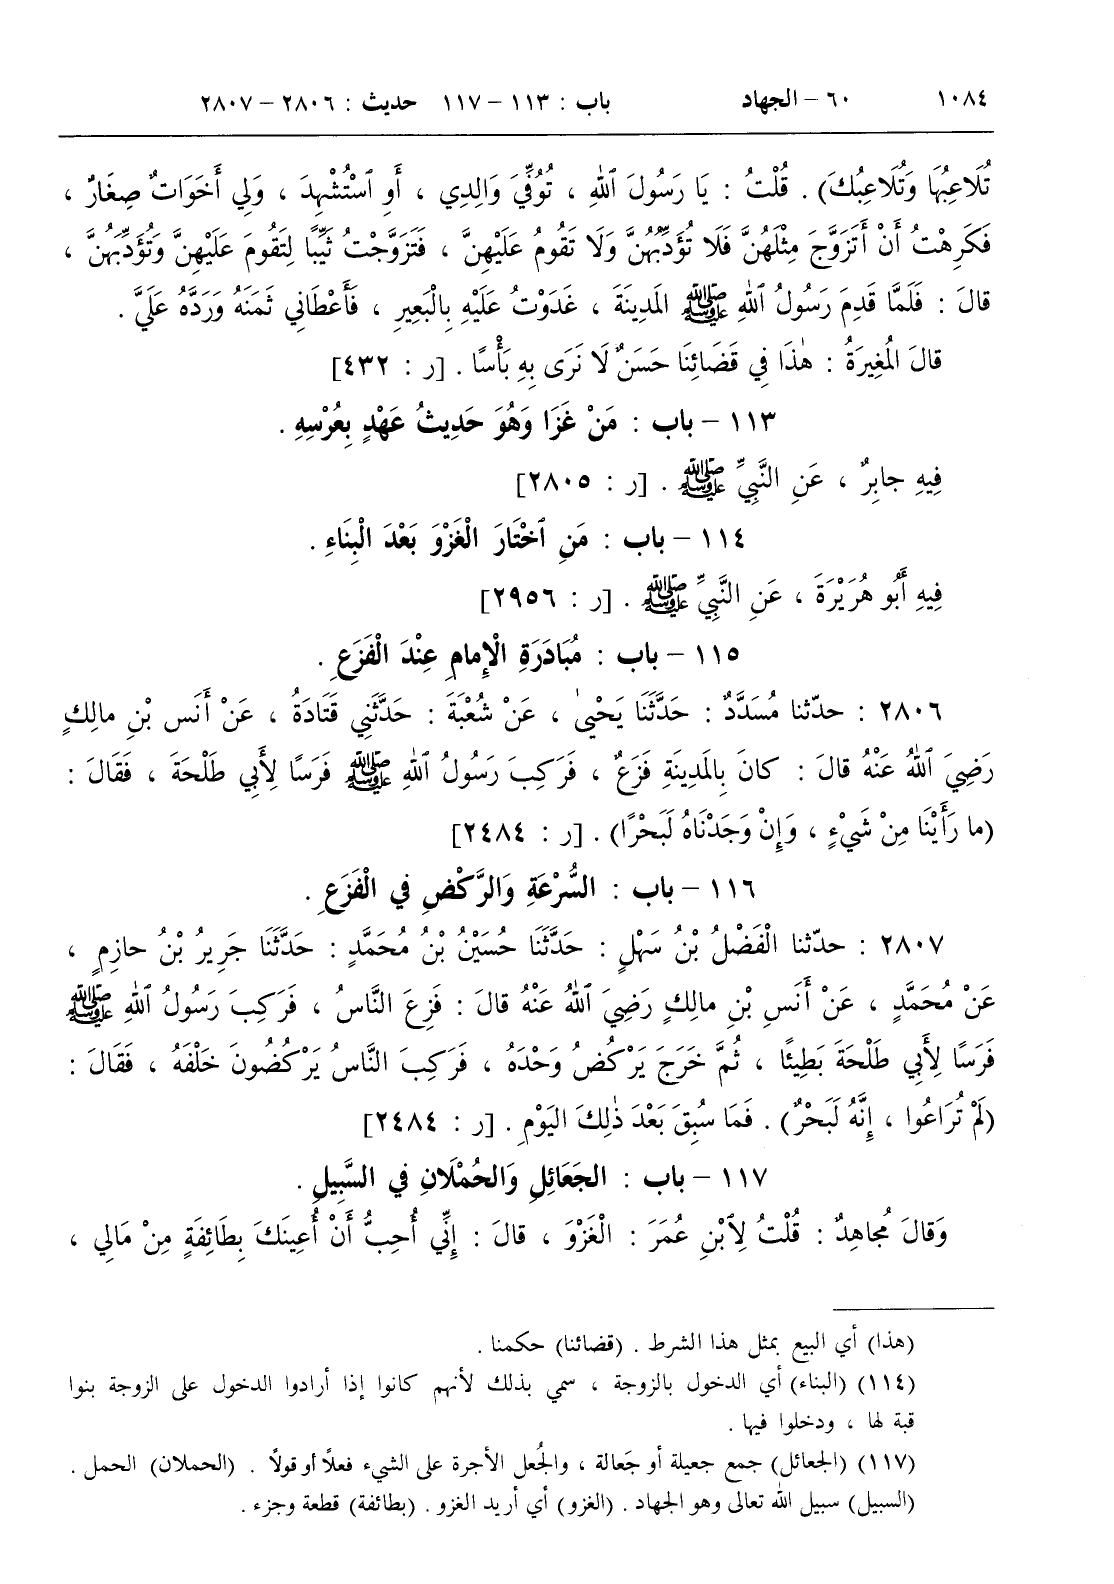 ١٠٨٤ ٦٠ – الجهاد باب : ١١٣ – ١١٧ حديث : ٢٨٠٦ – ٢٨٠٧
تُلَاعِبُهَا وَتُلَاعِبُكَ) . قُلْتُ : يَا رَسُولَ ٱللهِ ، تُوُفِّيَ وَالِدِي ، أَوِ ٱسْتُشْهِدَ ، وَلِي أَخَوَاتٌ صِغَارٌ ،
فَكَرِهْتُ أَنْ أَتَزَوَّجَ مِثْلَهُنَّ فَلَا تُؤَدِّبُهُنَّ وَلَا تَقُومُ عَلَيْهِنَّ ، فَتَزَوَّجْتُ ثَيِّبًا لِتَقُومَ عَلَيْهِنَّ وَتُؤَدِّبَهُنَّ ،
قالَ : فَلَمَّا قَدِمَ رَسُولُ ٱللهِ ﷺ المَدِينَةَ ، غَدَوْتُ عَلَيْهِ بِالْبَعِيرِ ، فَأَعْطَانِي ثَمَنَهُ وَرَدَّهُ عَلَيَّ .
قالَ المُغِيرَةُ : هٰذَا فِي قَضَائِنَا حَسَنٌ لَا نَرَى بِهِ بَأْسًا . [ر : ٤٣٢]
١١٣ – باب : مَنْ غَزَا وَهُوَ حَدِيثُ عَهْدٍ بِعُرْسِهِ .
فِيهِ جابِرٌ ، عَنِ النَّبِيِّ ﷺ . [ر : ٢٨٠٥]
١١٤ – باب : مَنِ ٱخْتَارَ الْغَزْوَ بَعْدَ الْبِنَاءِ .
فِيهِ أَبُو هُرَيْرَةَ ، عَنِ النَّبِيِّ ﷺ . [ر : ٢٩٥٦]
١١٥ – باب : مُبَادَرَةِ الْإِمامِ عِنْدَ الْفَزَعِ .
٢٨٠٦ : حدّثنا مُسَدَّدٌ : حَدَّثَنَا يَحْيىٰ ، عَنْ شُعْبَةَ : حَدَّثَنِي قَتَادَةُ ، عَنْ أَنَسِ بْنِ مالِكٍ
رَضِيَ ٱللهُ عَنْهُ قالَ : كانَ بِالمَدِينَةِ فَزَعٌ ، فَرَكِبَ رَسُولُ ٱللهِ ﷺ فَرَسًا لِأَبِي طَلْحَةَ ، فَقَالَ :
(ما رَأَيْنَا مِنْ شَيْءٍ ، وَإِنْ وَجَدْنَاهُ لَبَحْرًا) . [ر : ٢٤٨٤]
١١٦ – باب : السُّرْعَةِ وَالرَّكْضِ فِي الْفَزَعِ .
٢٨٠٧ : حدّثنا الْفَضْلُ بْنُ سَهْلٍ : حَدَّثَنَا حُسَيْنُ بْنُ مُحَمَّدٍ : حَدَّثَنَا جَرِيرُ بْنُ حازِمٍ ،
عَنْ مُحَمَّدٍ ، عَنْ أَنَسِ بْنِ مالِكٍ رَضِيَ ٱللهُ عَنْهُ قالَ : فَزِعَ النَّاسُ ، فَرَكِبَ رَسُولُ ٱللهِ ﷺ
فَرَسًا لِأَبِي طَلْحَةَ بَطِيئًا ، ثُمَّ خَرَجَ يَرْكُضُ وَحْدَهُ ، فَرَكِبَ النَّاسُ يَرْكُضُونَ خَلْفَهُ ، فَقَالَ :
(لَمْ تُرَاعُوا ، إِنَّهُ لَبَحْرٌ) . فَمَا سُبِقَ بَعْدَ ذٰلِكَ الْيَوْمِ . [ر : ٢٤٨٤]
١١٧ – باب : الجَعَائِلِ وَالحُمْلَانِ فِي السَّبِيلِ .
وَقالَ مُجاهِدٌ : قُلْتُ لِٱبْنِ عُمَرَ : الْغَزْوَ ، قالَ : إِنِّي أُحِبُّ أَنْ أُعِينَكَ بِطَائِفَةٍ مِنْ مَالِي ،
(هذا) أي البيع بمثل هذا الشرط . (قضائنا) حكمنا .
(١١٤) (البناء) أي الدخول بالزوجة ، سمي بذلك لأنهم كانوا إذا أرادوا الدخول على الزوجة بنوا
قبة لها ، ودخلوا فيها .
(١١٧) (الجعائل) جمع جعيلة أو جَعالة ، والجُعل الأجرة على الشيء فعلًا أو قولًا . (الحملان) الحمل .
(السبيل) سبيل الله تعالى وهو الجهاد . (الغزو) أي أريد الغزو . (بطائفة) قطعة وجزء .